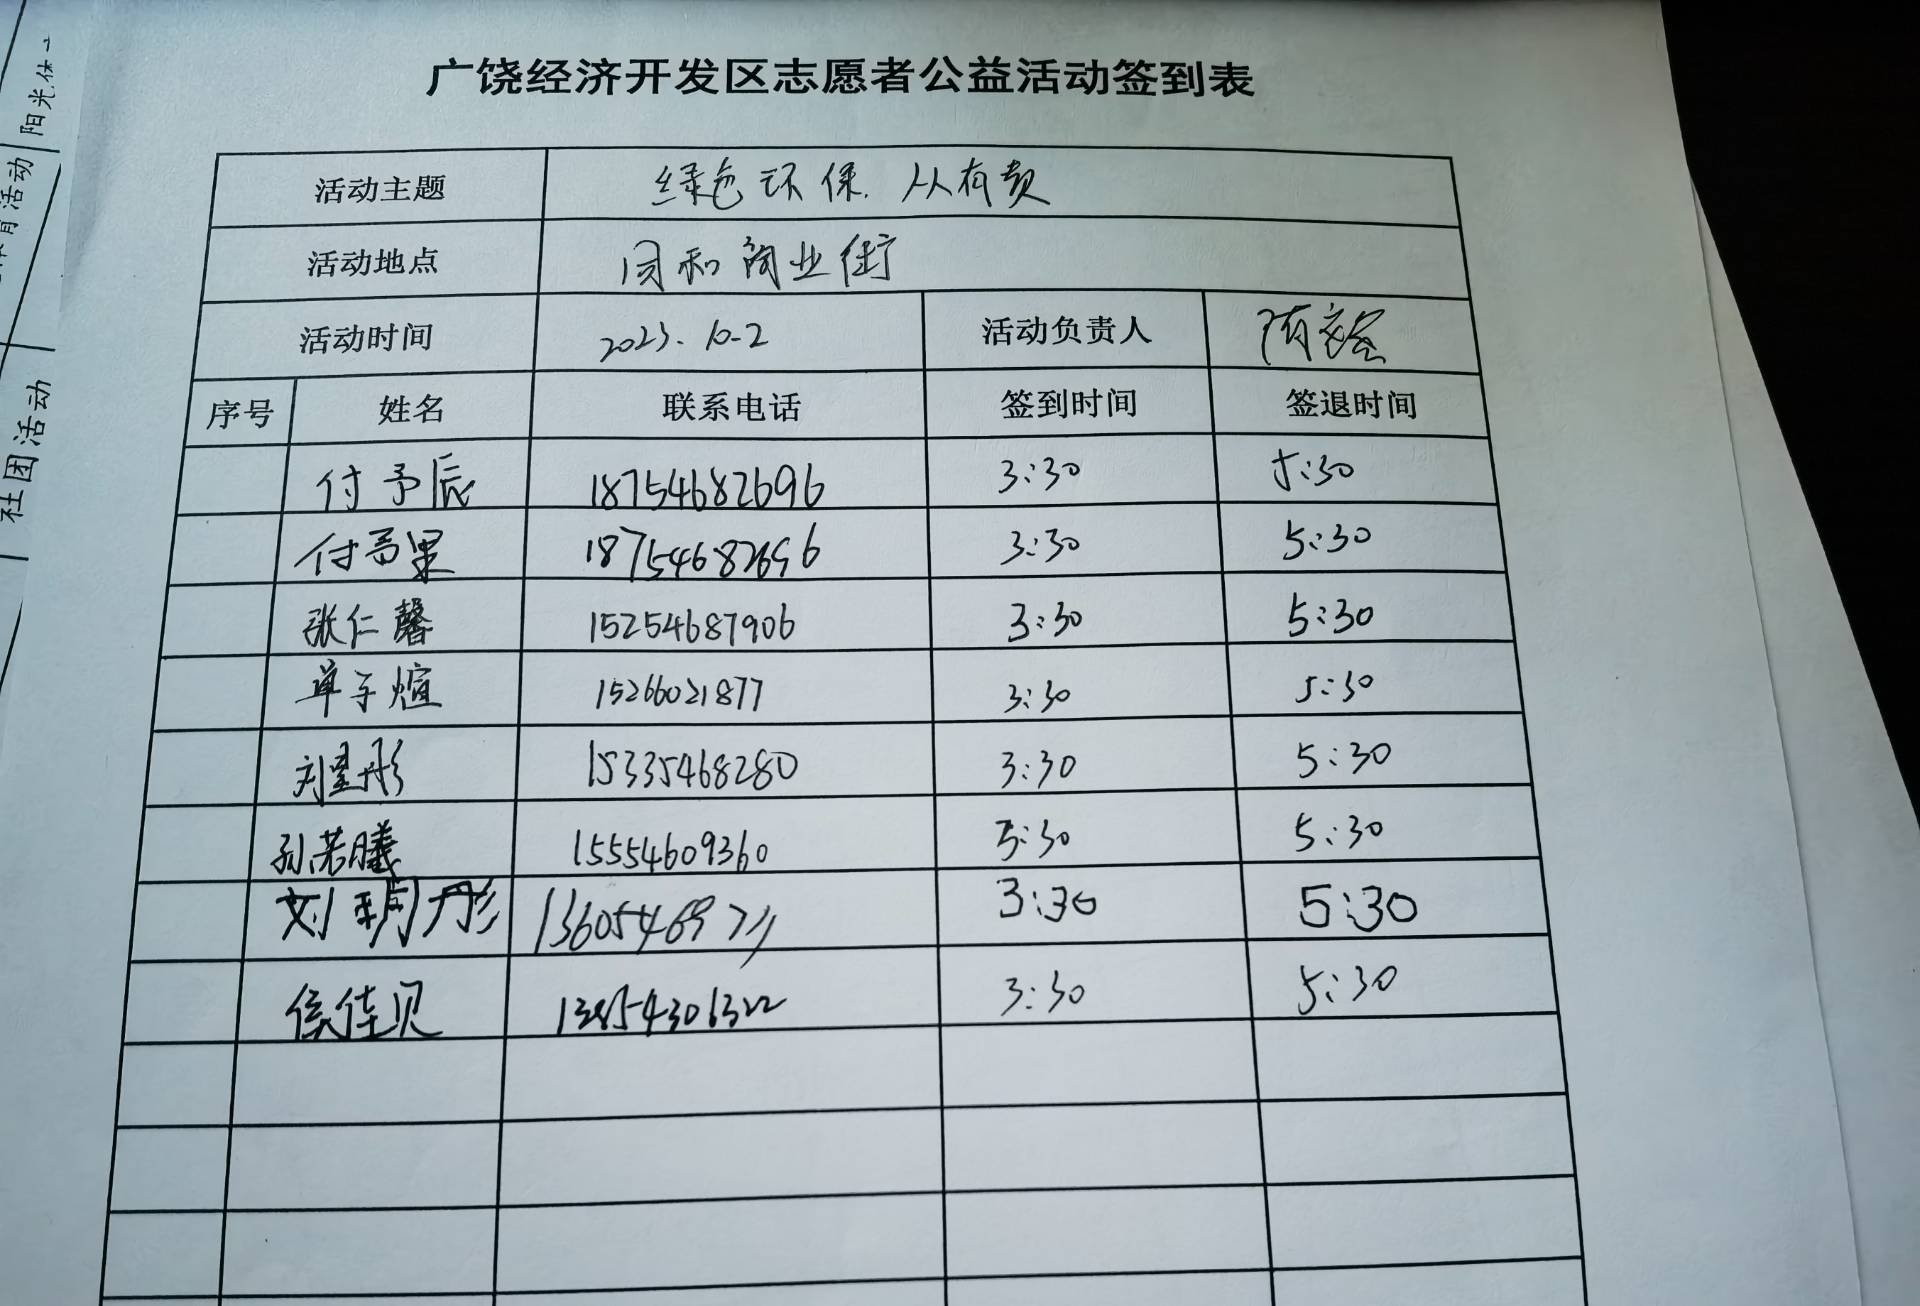 广饶经济开发区志愿者公益活动签到表
活动主题 绿色环保.人人有责
活动地点 同和商业街
活动时间 2023.10-2 活动负责人
序号 姓名 联系电话 签到时间 签退时间
付予辰 18754682696 3:30 5:30
付予果 18754682696 3:30 5:30
张仁馨 15254687906 3:30 5:30
单子煊 15266021877 3:30 5:30
刘星彤 15335468280 3:30 5:30
孙若曦 15554609360 5:30 5:30
刘玥彤 3:30 5:30
侯佳贝 3:30 5:30
阳光体
育活动
社团活动